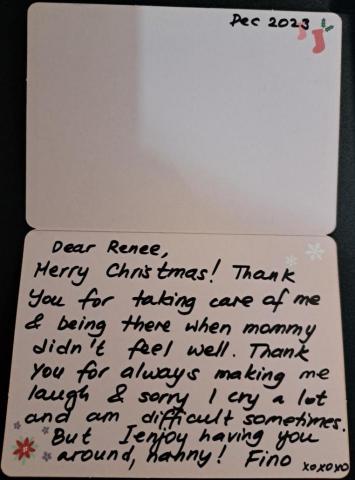 Dec 2023
Dear Renee,
Merry Christmas! Thank
you for taking care of me
& being there when mommy
didn't feel well. Thank
you for always making me
laugh & sorry I cry a lot
and am difficult sometimes.
But I enjoy having you
around, nanny! Fino xoxoxo